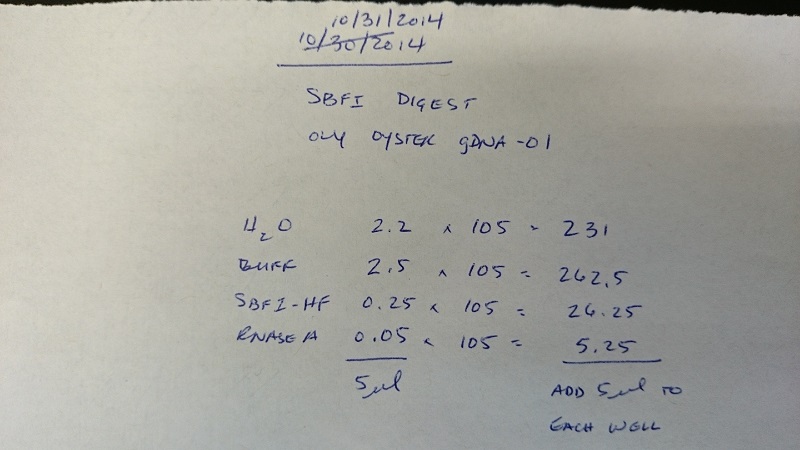 10/31/2014
10/30/2014
SBFI DIGEST
OLY OYSTER gDNA-01
H2O 2.2 x 105 = 231
BUFF 2.5 x 105 = 262.5
SBFI-HF 0.25 x 105 = 26.25
RNASE A 0.05 x 105 = 5.25
5ul ADD 5ul TO
EACH WELL